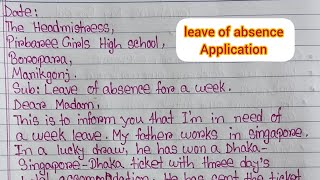 Date:
The Headmistress,
Pirbaree Girls High school,
Boropara,
Manikgonj.
Sub: Leave of absence for a week.
Dear Madam,
This is to inform you that I'm in need of
a week leave. My father works in singapore.
In a lucky draw, he has won a Dhaka-
Singapore-Dhaka ticket with three day's
accommodation. He has sent the ticket
leave of absence
Application